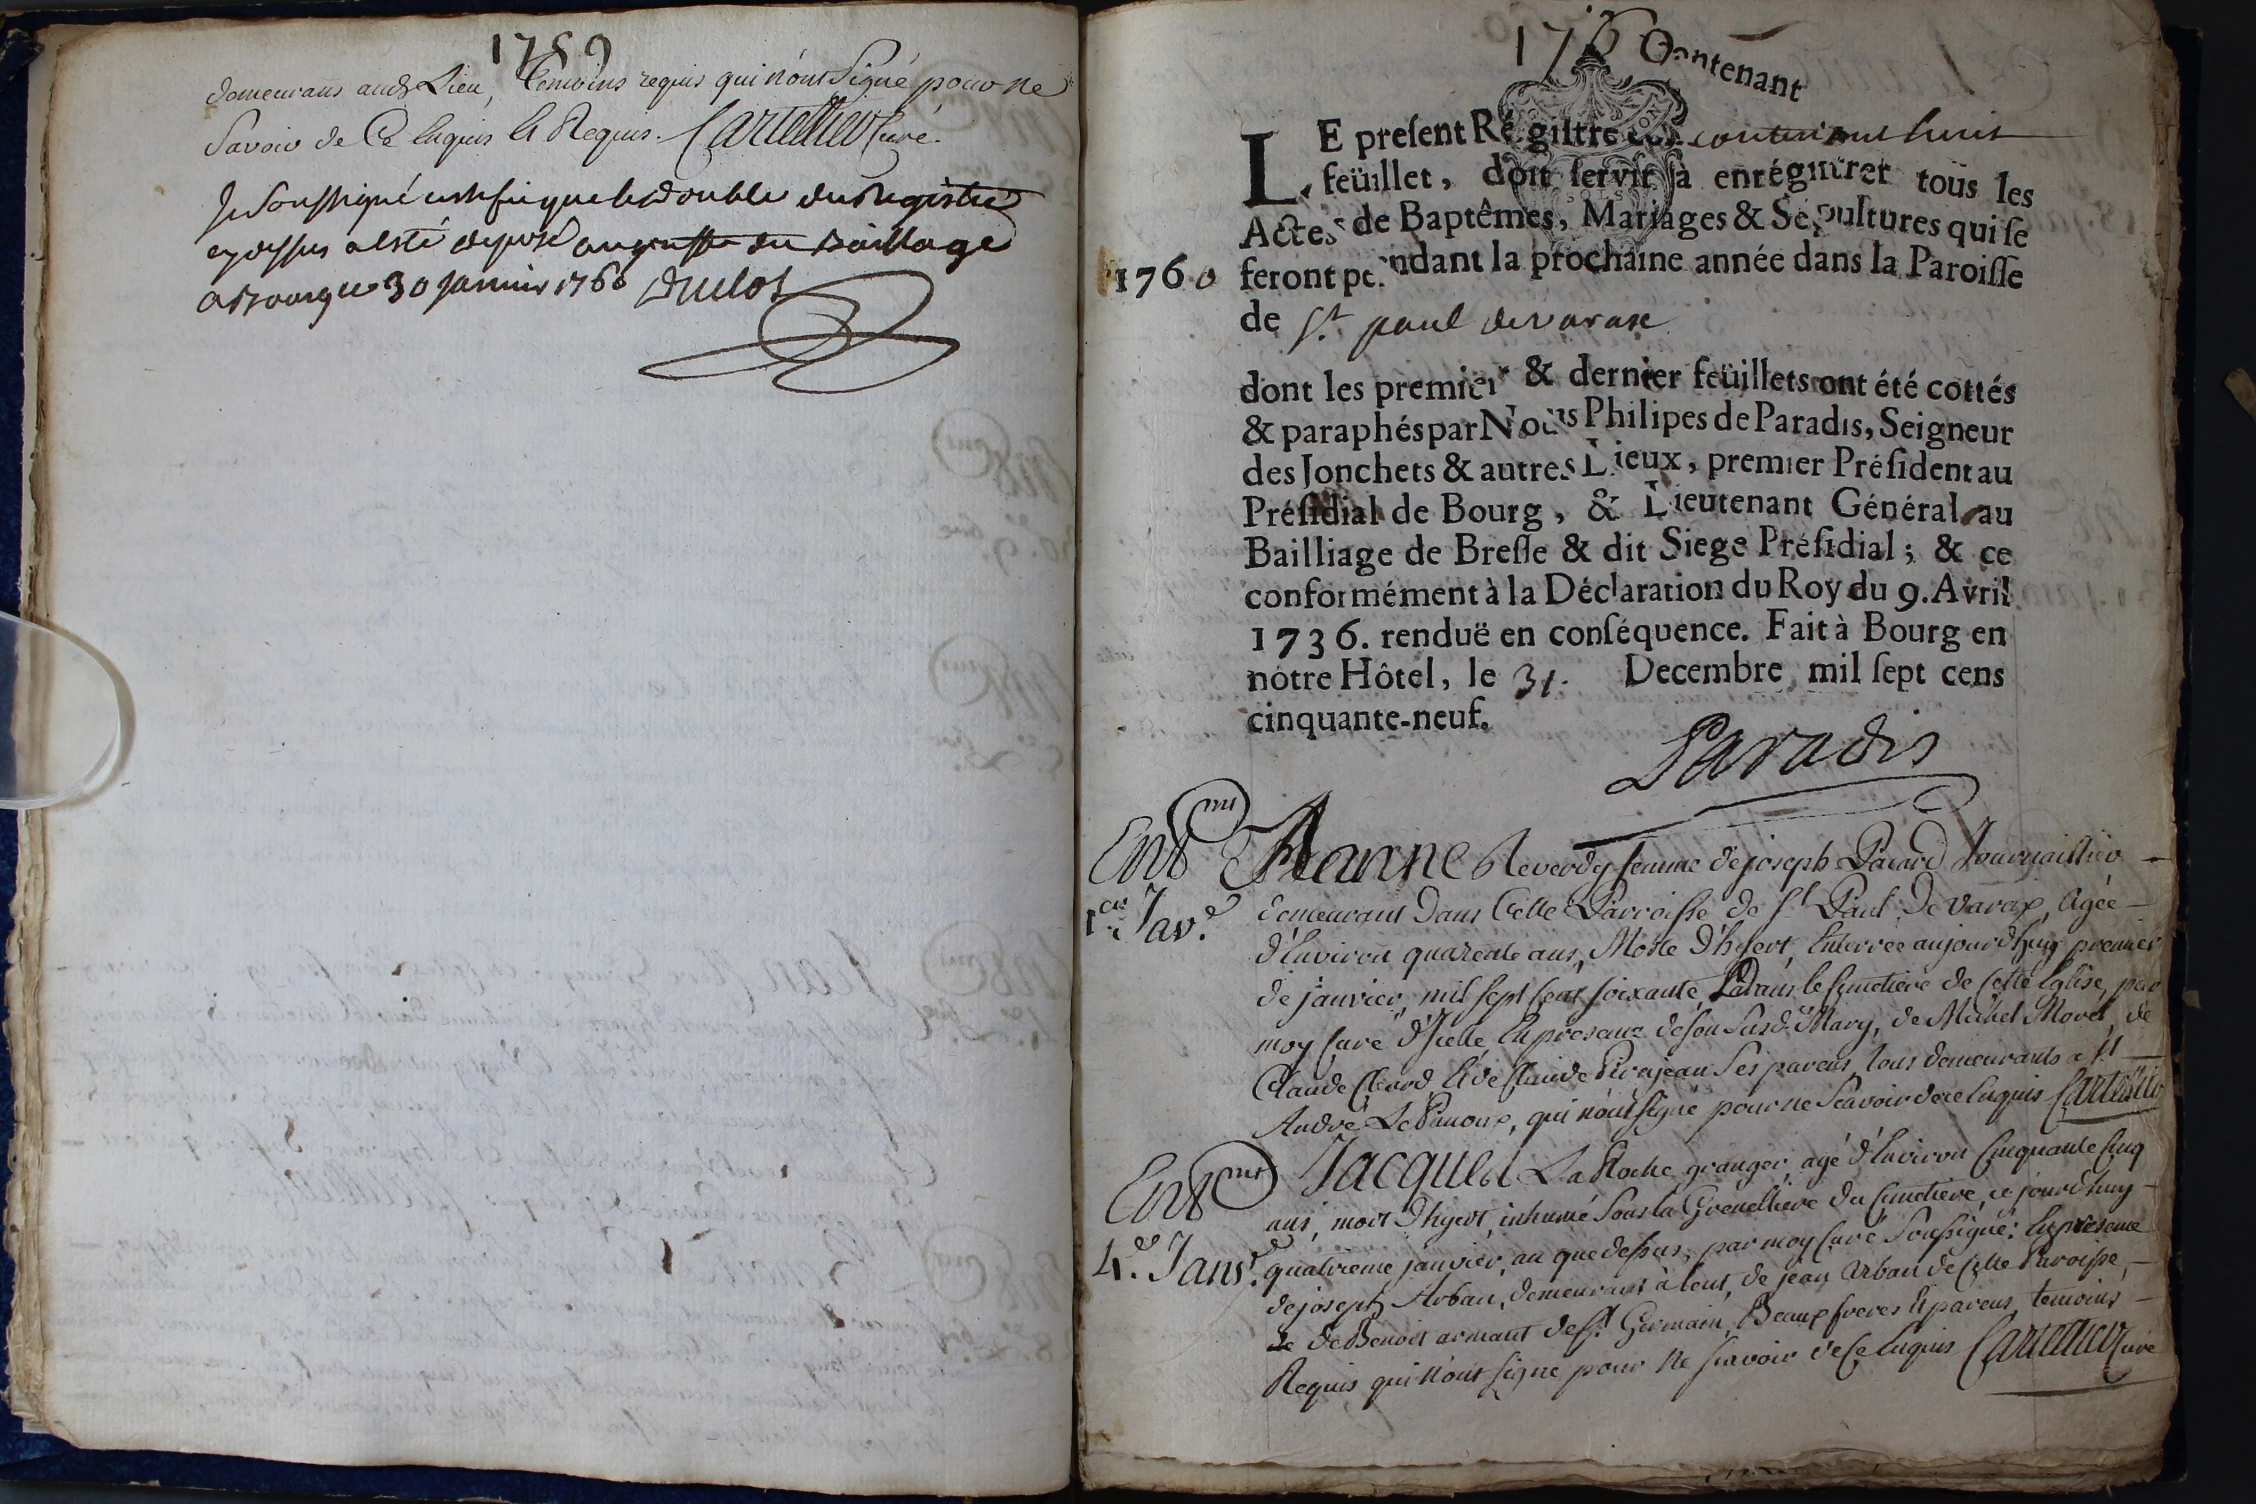 1759
demeurans aud. Lieu, Temoins requis qui n'ont Signé pour ne
Savoir de Ce Enquis et Requis. Cartellier Curé.
Je Soussigné certifie que le double du Registre
cy dessus a esté deposé au greffe du Bailliage
a Bourg ce 30 Janvier 1760 Duclos
176
Contenant
LE preſent Régiſtre contenant huit
feüillet, doit ſervir à enrégiſtrer tous les
Actes de Baptêmes, Mariages & Sépultures qui ſe
1760 feront pendant la prochaine année dans la Paroiſſe
de St. paul devarax
dont les premier & dernier feüillets ont été cottés
& paraphés par Nous Philipes de Paradis, Seigneur
des Jonchets & autres Lieux, premier Préſident au
Préſidial de Bourg, & Lieutenant Général au
Bailliage de Breſſe & dit Siege Préſidial; & ce
conformément à la Déclaration du Roy du 9. Avril
1736. renduë en conſéquence. Fait à Bourg en
nôtre Hôtel, le 31. Decembre mil ſept cens
cinquante-neuf.
Paradis
Ent.mt Jeanne Reverdy femme de joseph Pacard
1er Janv. demeurant Dans Cette Parroisse de St Paul De varax, Agée
d'Environ quarente ans, Morte D'hyert, Enterrée aujourdhuy premier
de janvier, mil sept Cent soixante, Dans le Cimetiere de Cette Eglise, par
moy Curé d'Icelle, En presence de son Susd. Mary, de Michel Morel, de
Claude Clerod, et de Claude ses parens, tous demeurants a St
André Le Panoux, qui n'ont signé pour ne Scavoir de ce Enquis Cartellier
Ent.mt Jacques La Roche granger, agé d'Environ Cinquante Cinq
ans, mort D'hyert, inhumé Sous la du Cimetiere, ce jourdhuy
4.e Janv. quatrieme janvier, an que dessus, par moy Curé Soussigné: En presence
de joseph Arban, demeurant à lent, de jean Arban de Cette Paroisse,
de Benoit armant de St Germain, Beaux freres et parens, temoins
Requis qui n'ont signé pour Ne scavoir de Ce Enquis Cartellier Curé